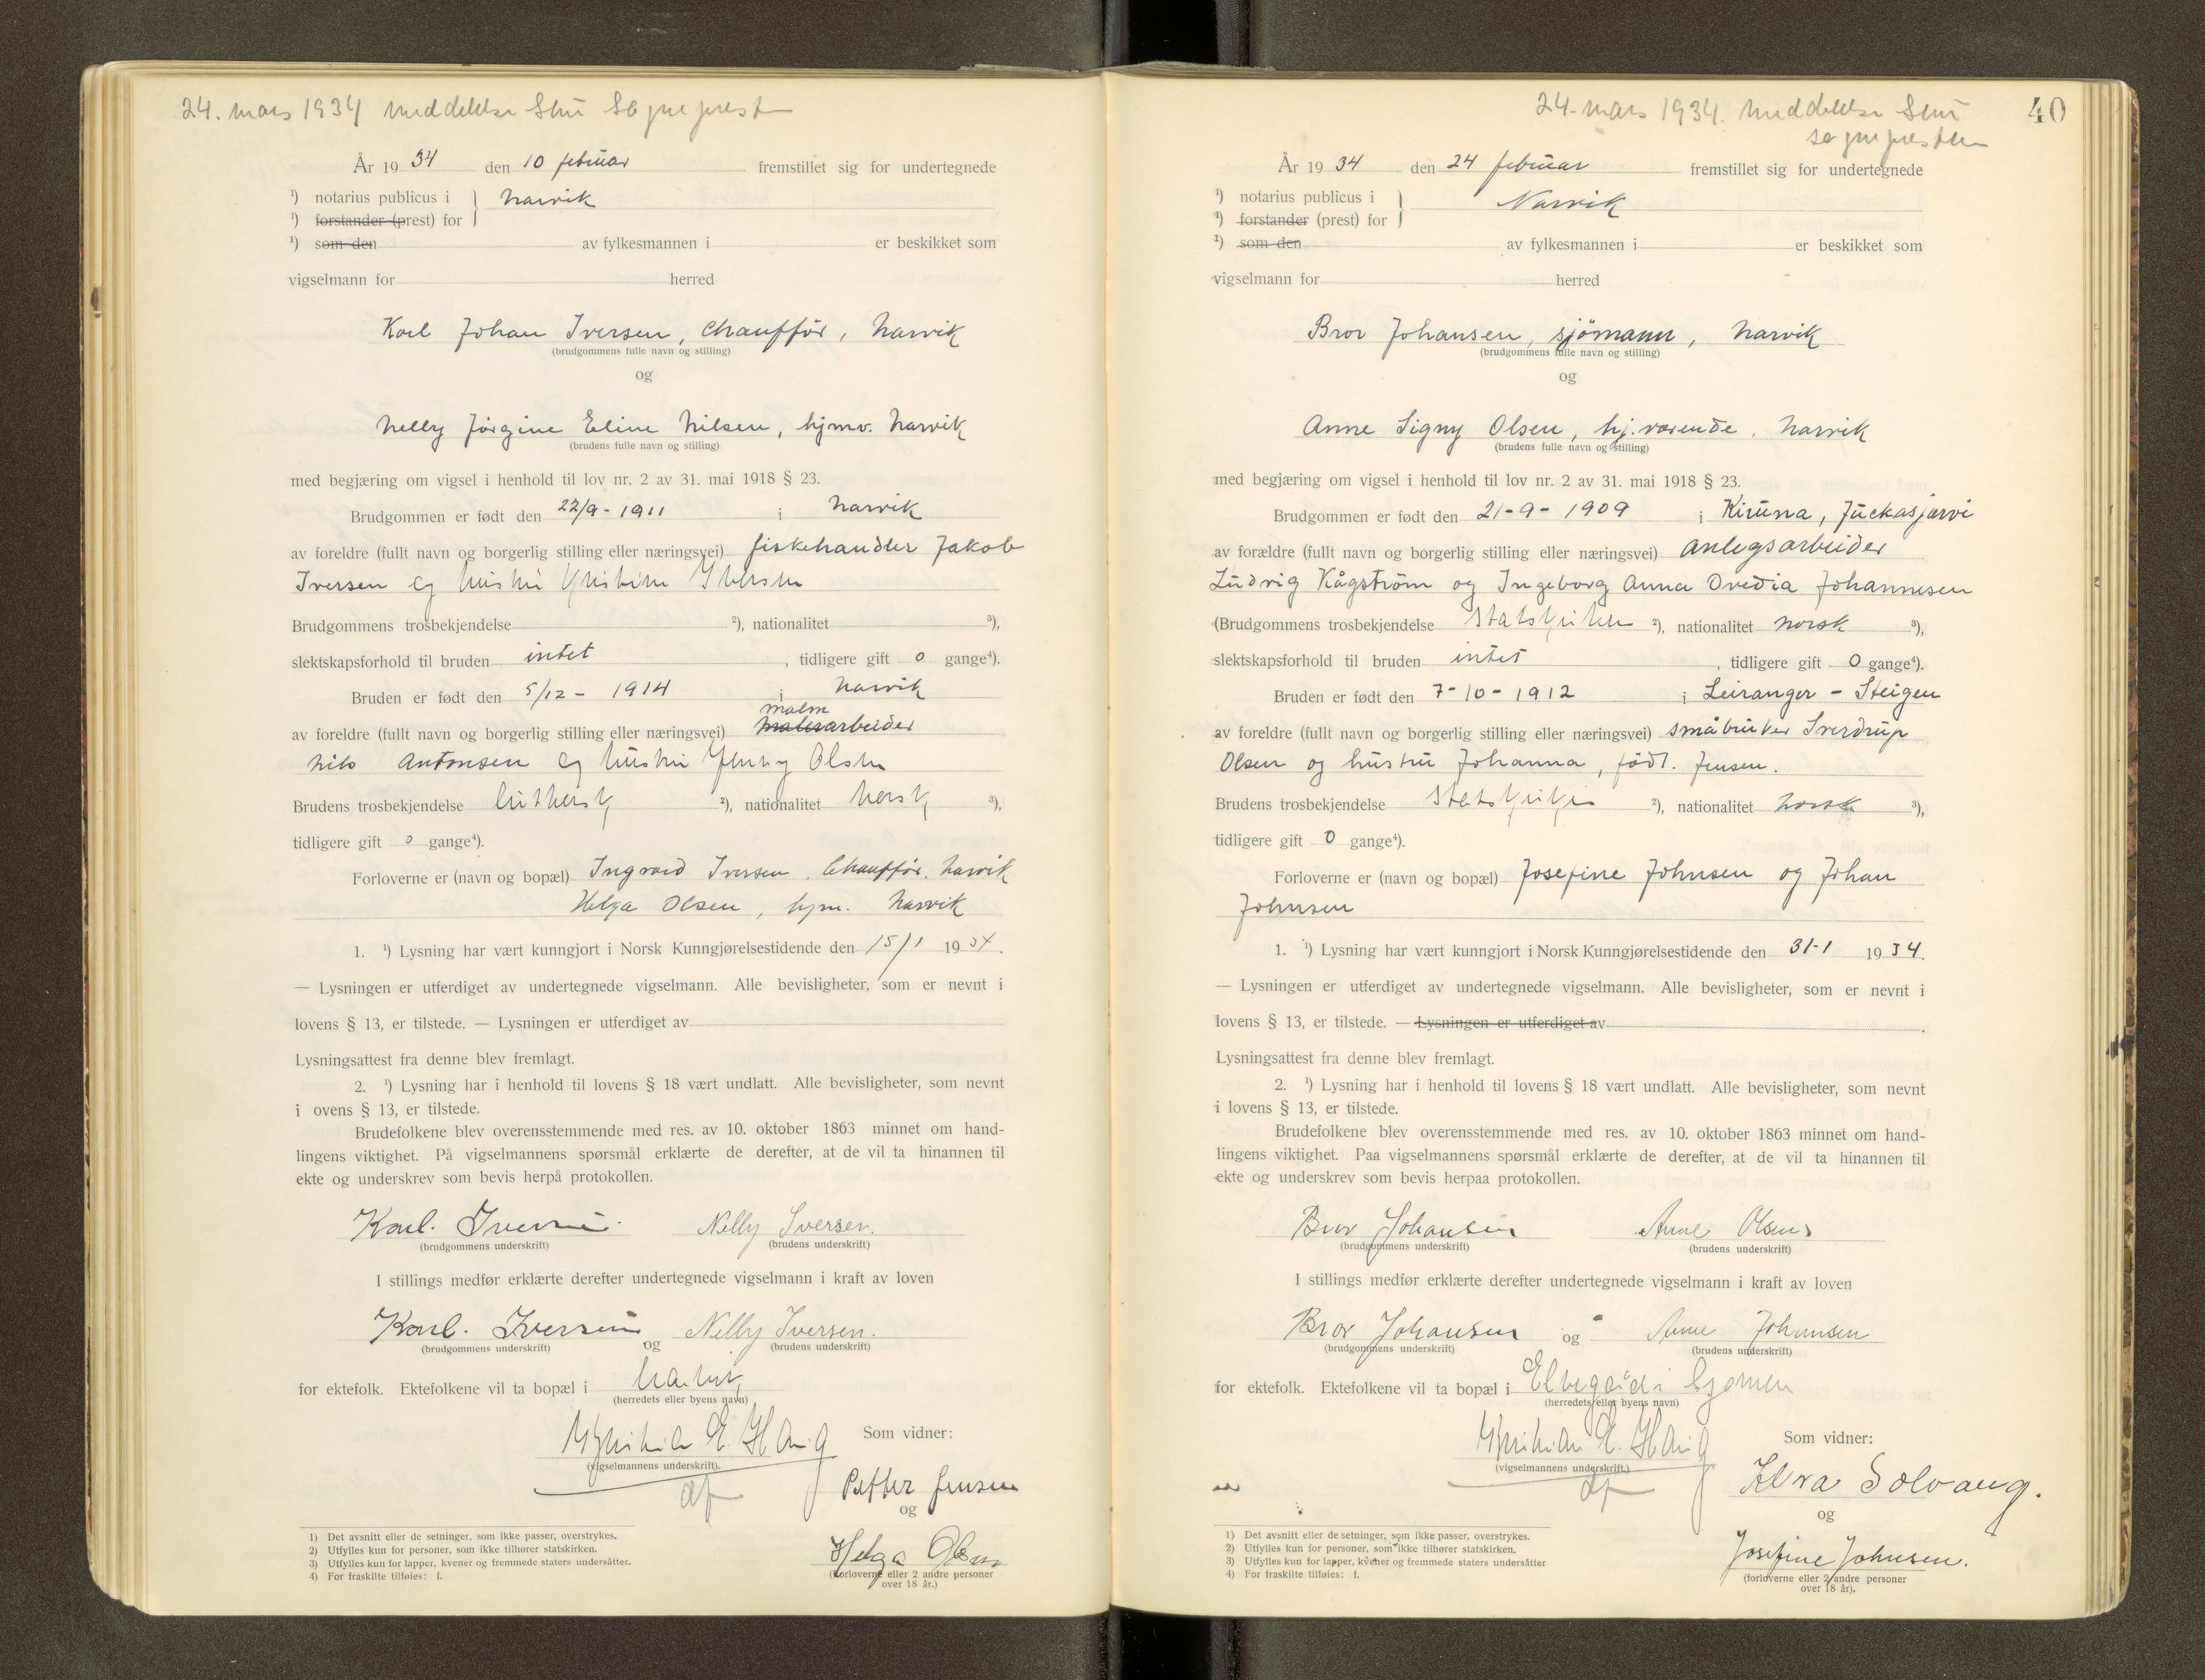 24. mars 1934 meddelelse sendt Sogneprest
År 19 34 den 10 februar fremstillet sig for undertegnede
1) notarius publicus i } Narvik
1) forstander (prest) for
1) som den av fylkesmannen i er beskikket som
vigselmann for herred
Karl Johan Iversen, Chaufför, Narvik
(brudgommens fulle navn og stilling)
og
Nelly Jörgine Eline Nilsen, hjmv. Narvik
(brudens fulle navn og stilling)
med begjæring om vigsel i henhold til lov nr. 2 av 31. mai 1918 § 23.
Brudgommen er født den 22/9 - 1911 i Narvik
av foreldre (fullt navn og borgerlig stilling eller næringsvei) fiskehandler Jakob
Iversen og hustru Kristine Iversen
Brudgommens trosbekjendelse 2), nationalitet 3),
slektskapsforhold til bruden intet, tidligere gift 0 gange4).
Bruden er født den 5/12 - 1914 i Narvik
malm
av foreldre (fullt navn og borgerlig stilling eller næringsvei) malerarbeider
Nils Antonsen og hustru Jenny Olsen
Brudens trosbekjendelse luthersk 2), nationalitet norsk 3),
tidligere gift 0 gange4).
Forloverne er (navn og bopæl) Ingvard Iversen. Chaufför. Narvik
Helga Olsen, hjm. Narvik
1. 1) Lysning har vært kunngjort i Norsk Kunngjørelsestidende den 15/1 1934.
— Lysningen er utferdiget av undertegnede vigselmann. Alle bevisligheter, som er nevnt i
lovens § 13, er tilstede. — Lysningen er utferdiget av
Lysningsattest fra denne blev fremlagt.
2. 1) Lysning har i henhold til lovens § 18 vært undlatt. Alle bevisligheter, som nevnt
i ovens § 13, er tilstede.
Brudefolkene blev overensstemmende med res. av 10. oktober 1863 minnet om hand-
lingens viktighet. På vigselmannens spørsmål erklærte de derefter, at de vil ta hinannen til
ekte og underskrev som bevis herpå protokollen.
Karl. Iversen. Nelly Iversen.
(brudgommens underskrift) (brudens underskrift)
I stillings medfør erklærte derefter undertegnede vigselmann i kraft av loven
Karl. Iversen og Nelly Iversen.
(brudgommens underskrift) (brudens underskrift)
for ektefolk. Ektefolkene vil ta bopæl i Narvik
(herredets eller byens navn)
Kristian E. Haug Som vidner:
(vigselmannens underskrift).
Petter Jensen
og
Helga Olsen
(forloverne eller 2 andre personer
over 18 år.)
1) Det avsnitt eller de setninger, som ikke passer, overstrykes.
2) Utfylles kun for personer, som ikke tilhører statskirken.
3) Utfylles kun for lapper, kvener og fremmede staters undersåtter.
4) For fraskilte tilføies: f.
40
24. mars 1934. meddelelse sendt
sognepresten
År 19 34 den 24 februar fremstillet sig for undertegnede
1) notarius publicus i } Narvik
1) forstander (prest) for
1) som den av fylkesmannen i er beskikket som
vigselmann for herred
Bror Johansen, sjömann, Narvik
(brudgommens fulle navn og stilling)
og
Anne Signy Olsen, hj.værende. Narvik
(brudens fulle navn og stilling)
med begjæring om vigsel i henhold til lov nr. 2 av 31. mai 1918 § 23.
Brudgommen er født den 21-9-1909 i Kiruna, Juckasjärvi
av forældre (fullt navn og borgerlig stilling eller næringsvei) anlegsarbeider
Ludvig Kågström og Ingeborg Anna Ovedia Johannesen
(Brudgommens trosbekjendelse statskirken 2), nationalitet norsk 3),
slektskapsforhold til bruden intet, tidligere gift 0 gange4).
Bruden er født den 7-10-1912 i Leiranger - Steigen
av foreldre (fullt navn og borgerlig stilling eller næringsvei) småbruker Sverdrup
Olsen og hustru Johanna, födt. Jensen.
Brudens trosbekjendelse Statskirken 2), nationalitet norsk 3),
tidligere gift 0 gange4).
Forloverne er (navn og bopæl) Josefine Johnsen og Johan
Johnsen
1. 1) Lysning har vært kunngjort i Norsk Kunngjørelsestidende den 31-1 1934.
— Lysningen er utferdiget av undertegnede vigselmann. Alle bevisligheter, som er nevnt i
lovens § 13, er tilstede. — Lysningen er utferdiget av
Lysningsattest fra denne blev fremlagt.
2. 1) Lysning har i henhold til lovens § 18 vært undlatt. Alle bevisligheter, som nevnt
i lovens § 13, er tilstede.
Brudefolkene blev overensstemmende med res. av 10. oktober 1863 minnet om hand-
lingens viktighet. Paa vigselmannens spørsmål erklærte de derefter, at de vil ta hinannen til
ekte og underskrev som bevis herpaa protokollen.
Bror Johansen Anne Olsen
(brudgommens underskrift) (brudens underskrift)
I stillings medfør erklærte derefter undertegnede vigselmann i kraft av loven
Bror Johansen og Anne Johansen
(brudgommens underskrift) (brudens underskrift)
for ektefolk. Ektefolkene vil ta bopæl i Elvegård i
(herredets eller byens navn)
Kristian E. Haug Som vidner:
(vigselmannens underskrift.)
Solvang.
og
Josefine Johnsen.
(forloverne eller 2 andre personer
over 18 år).
1) Det avsnitt eller de setninger, som ikke passer, overstrykes.
2) Utfylles kun for personer, som ikke tilhører statskirken.
3) Utfylles kun for lapper, kvener og fremmede staters undersåtter
4) For fraskilte tilføies: f.